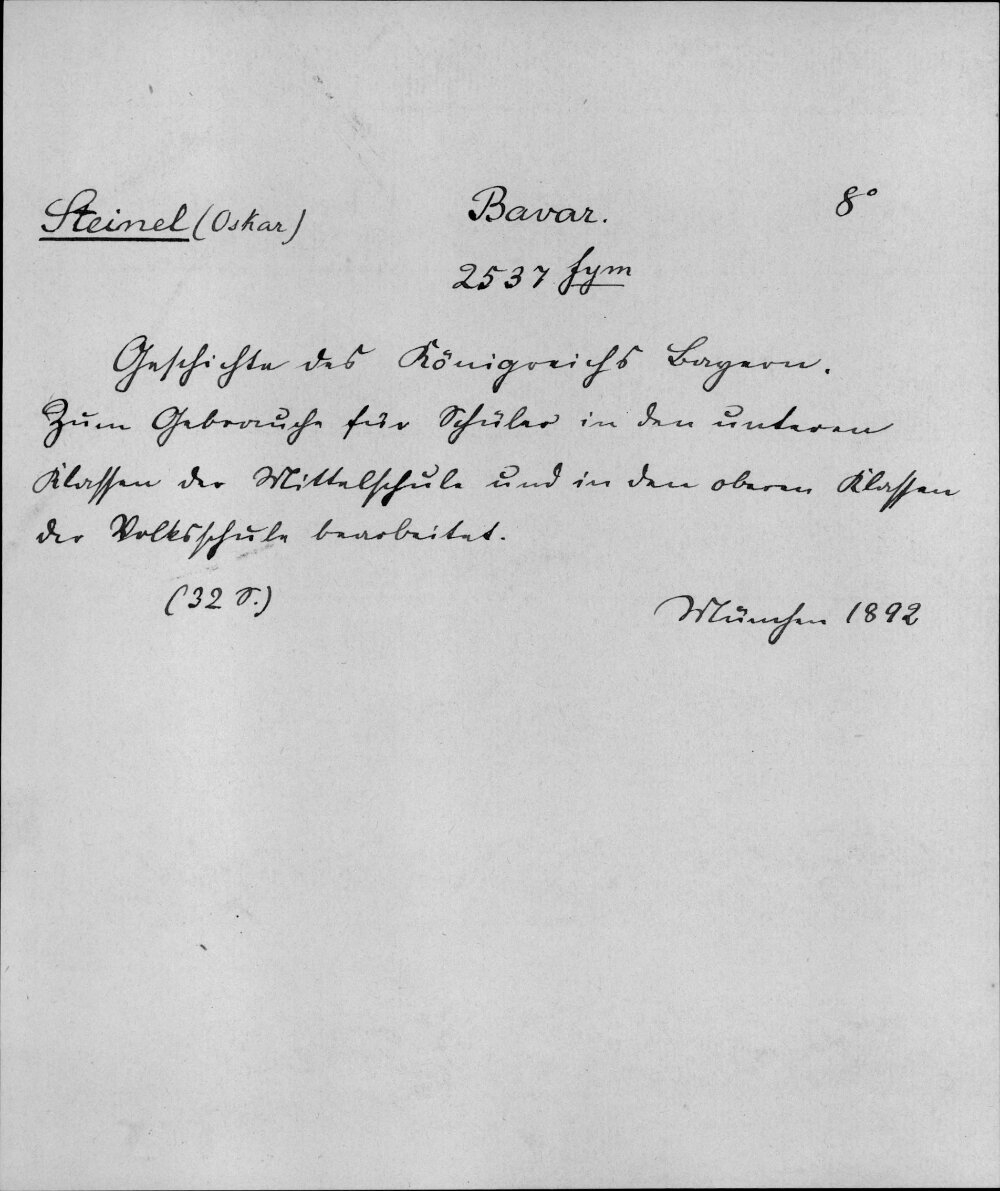 Steinel (Oskar) Bavar. 8°
2537 fym
Geschichte des Königreichs Bayern.
Zum Gebrauche für Schüler in den unteren
Klassen der Mittelschule und in den oberen Klassen
der Volksschule bearbeitet.
(32 S.)
München 1892